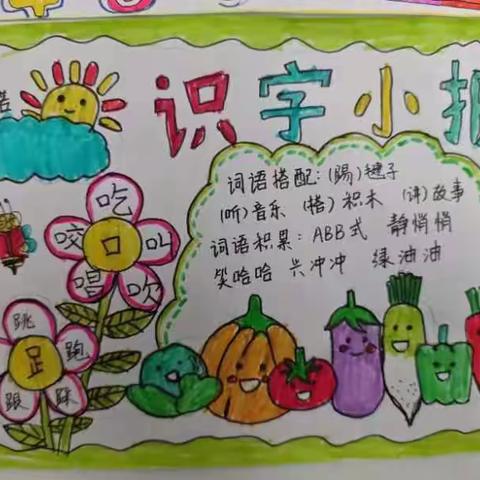 识字小报
词语搭配:(踢)毽子
(听)音乐 (搭)积木 (讲)故事
词语积累:ABB式 静悄悄
笑哈哈 兴冲冲 绿油油
吃
咬 口 叫
唱 吹
跳
足 跑
跟